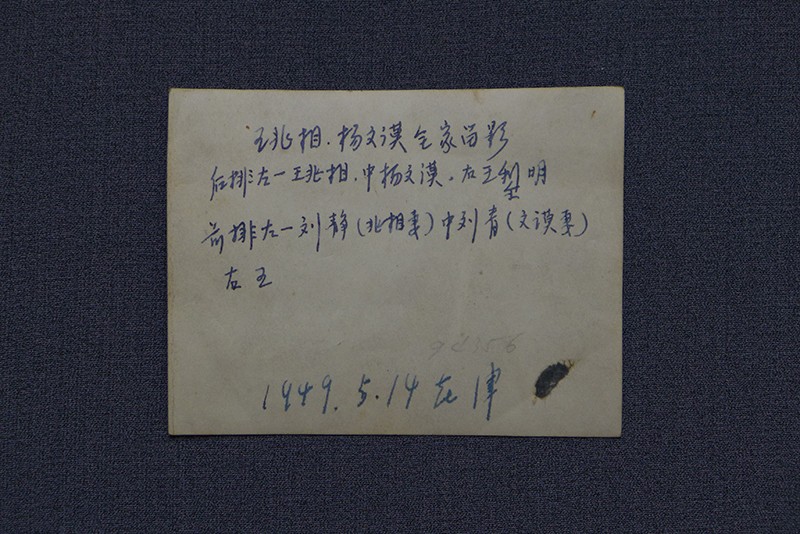 王兆相.杨文谟全家留影
后排左一王兆相.中杨文谟.右王型明
前排左一刘静(兆相妻)中刘青(文谟妻)
右王
1949.5.14在津